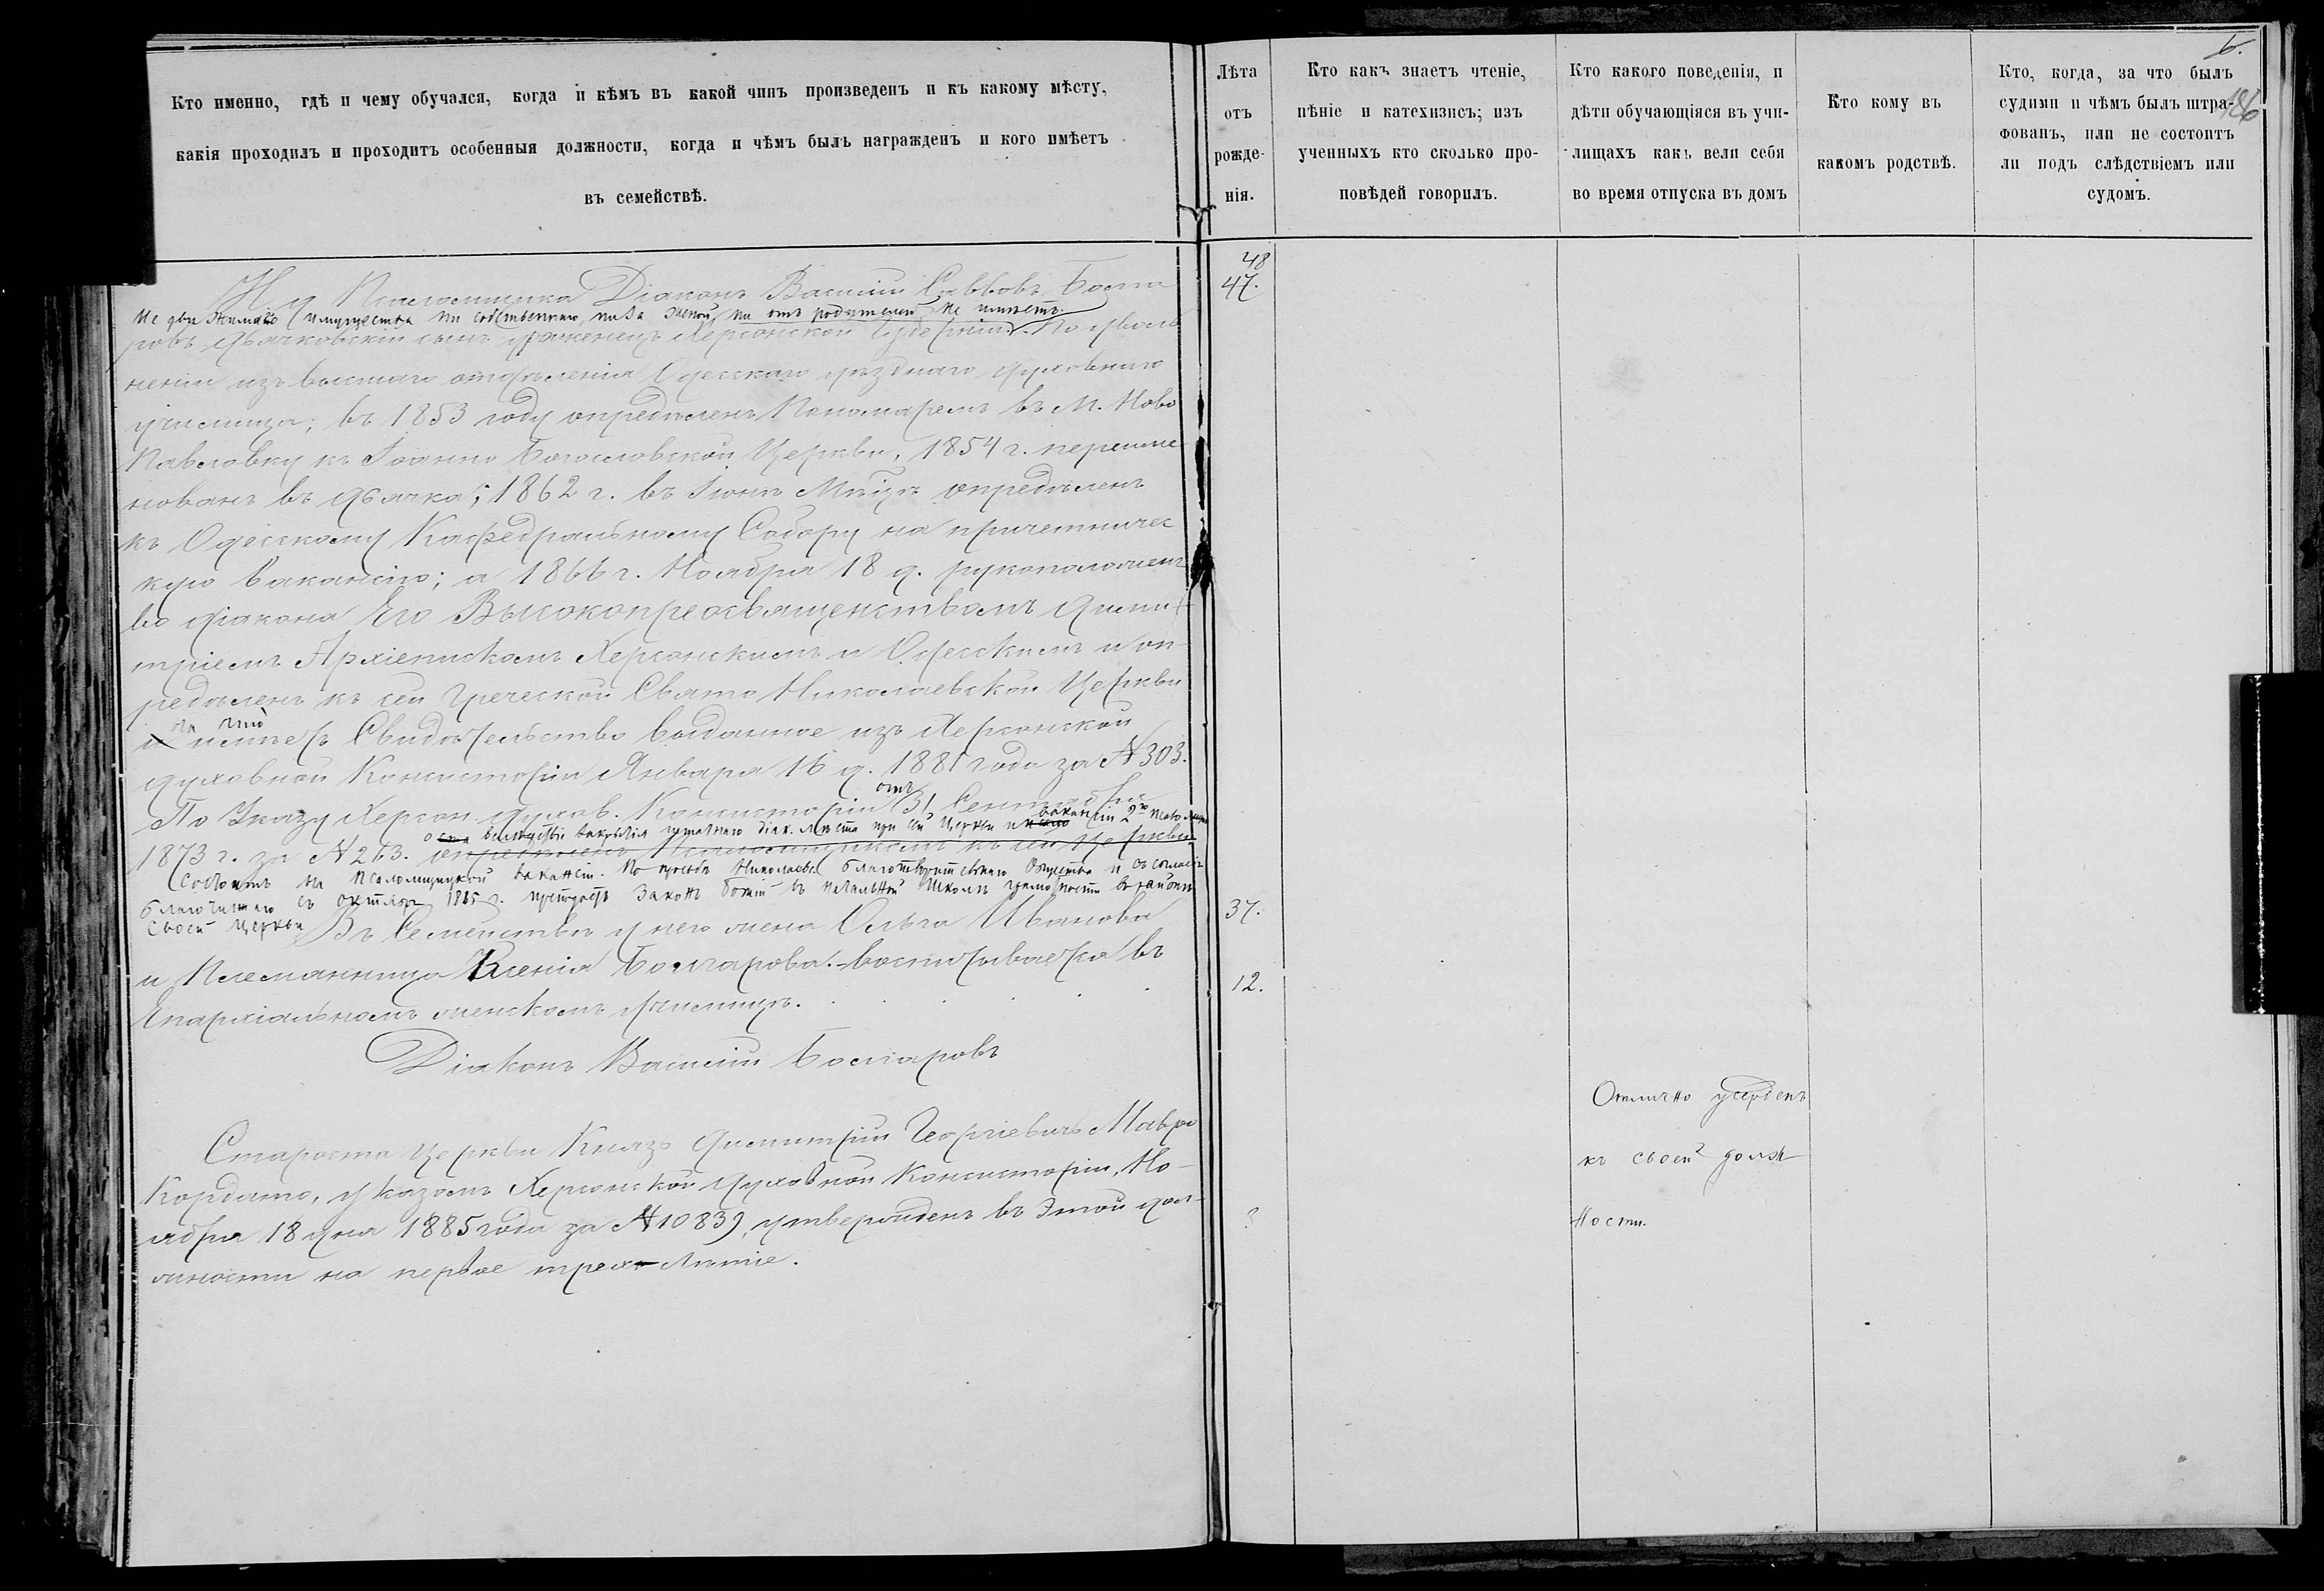 Кто именно, гдѣ и чему обучался, когда и кѣмъ въ какой чинъ произведенъ и къ какому мѣсту,
какія проходилъ и проходитъ особенныя должности, когда и чѣмъ былъ награжденъ и кого имѣетъ
въ семействѣ.
Лѣта
отъ
рожде-
нія.
Кто какъ знаетъ чтеніе,
пѣніе и катехизисъ; изъ
ученныхъ кто сколько про-
повѣдей говорилъ.
Кто какого поведенія, и
дѣти обучающіяся въ учи-
лищахъ какъ вели себя
во время отпуска въ домъ
Кто кому въ
какомъ родствѣ.
6.
Кто, когда, за что былъ
судимъ и чѣмъ былъ штра-
фованъ, или не состоитъ
ли подъ слѣдствіемъ или
судомъ.
186
И. д. Псаломщика Діаконъ Василій Саввовъ Болга
48
47.
Не движимаго имущества ни собственнаго, ни за женой, ни отъ родителей не имѣетъ.
ровъ дьячковскій сынъ уроженецъ Херсонской Губерніи. По уволь
неніи изъ высшаго отдѣленія Одесскаго уѣзднаго духовнаго
училища; въ 1853 году опредѣленъ Пономаремъ въ м. Ново
Павловку къ Іоанно Богословской Церкви, 1854 г. переиме
нованъ въ дьячка; 1862 г. въ Іюнѣ Мѣсяцѣ опредѣленъ
къ Одесскому Кафедральному Собору на причетничес
кую вакансію; а 1866 г. Ноября 18 д. рукоположенъ
во діакона Его Высокопреосвященствомъ Дими-
тріемъ Архіепископомъ Херсонскимъ и Одесскимъ и оп
редѣленъ къ сей Греческой Свято Николаевской Церкви
на что
и имѣетъ Свидѣтельство выданное изъ Херсонской
духовной Консисторіи Января 16 д. 1881 года за № 303.
По Указу Херсон. духов. Консисторіи отъ 31 Сентября
вслѣдствіе закрытія штатнаго діак. мѣста при сей Церкви вакансіи 2го
1873 г. за № 263. опредѣленъ Псаломщикомъ къ сей Церкви
Состоитъ на Псаломщицкой вакансіи. По просьбѣ Николаевск. благотворительнаго Общества и съ согласія
благочиннаго съ октября 1885 г. преподаетъ Законъ Божій въ начальной школѣ грамотности въ районѣ
своей Церкви
Въ Семействѣ у него жена Ольга Иванова
37.
и Племянница Ксенія Болгарова. воспитывается въ
12.
Епархіальномъ женскомъ училищѣ.
Діаконъ Василій Болгаровъ
Староста Церкви Князь Димитрій Георгіевичъ Мавро
Кордато, указомъ Херсонской духовной Консисторіи, Но-
ября 18 дня 1885 года за № 10839, утвержденъ въ этой дол-
жности на первое трех-лѣтіе.
?
Отлично усерденъ
къ своей долж
ности.